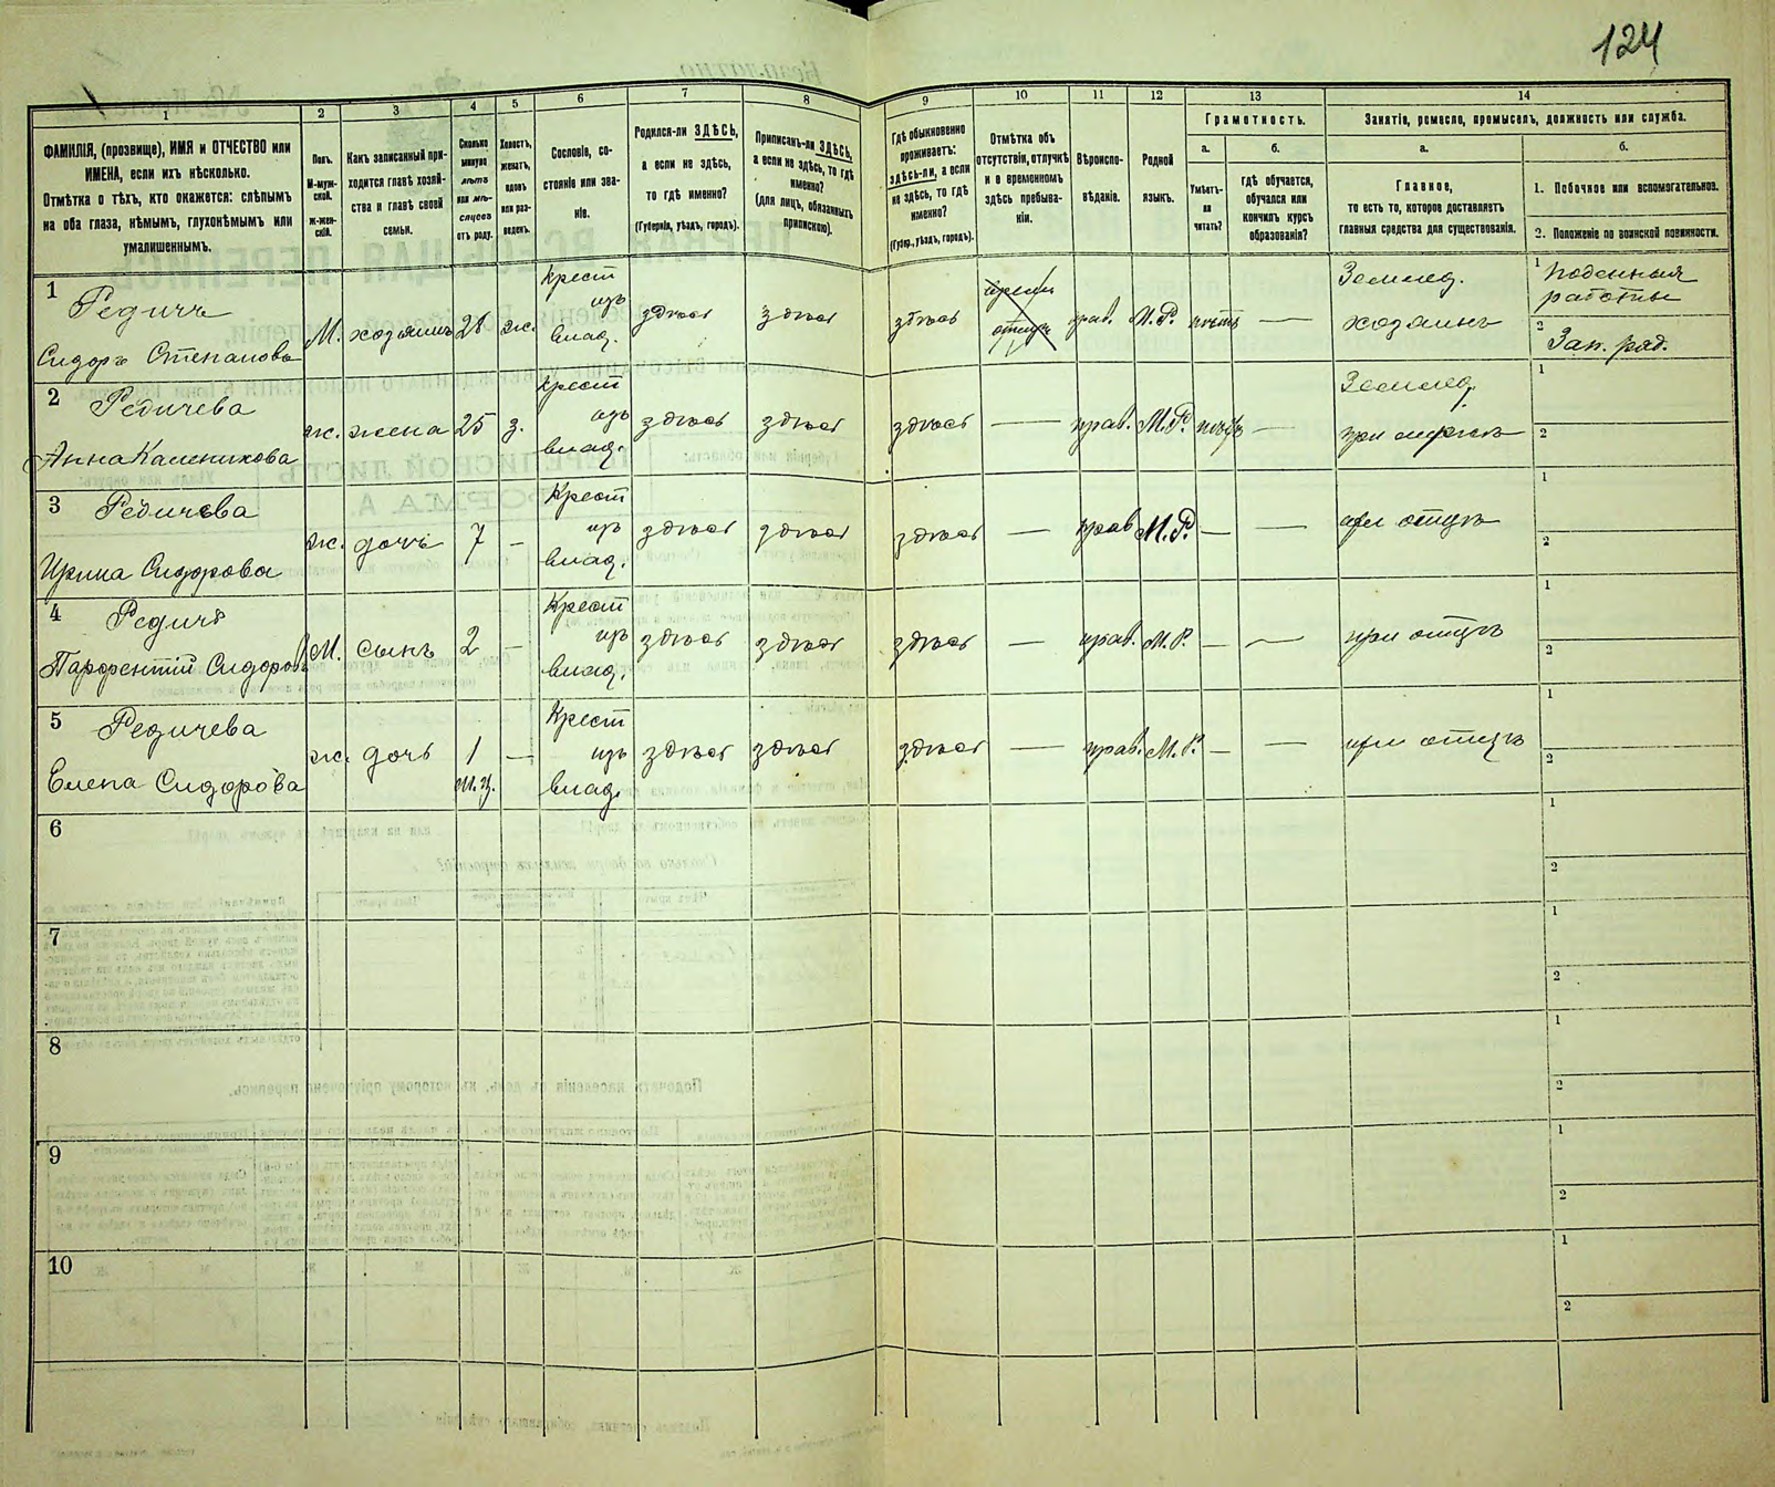 124
1
2
3
4
5
6
7
8
9
10
11
12
13
14
ФАМИЛІЯ, (прозвище), ИМЯ и ОТЧЕСТВО или
ИМЕНА, если ихъ нѣсколько.
Отмѣтка о тѣхъ, кто окажется: слѣпымъ
на оба глаза, нѣмымъ, глухонѣмымъ или
умалишеннымъ.
Полъ.
М-муж-
ской.
ж-жен-
скій.
Какъ записанный при-
ходится главѣ хозяй-
ства и главѣ своей
семьи.
Сколько
минуло
лѣтъ
или мѣ-
сяцевъ
отъ роду.
Холостъ,
женатъ,
вдовъ
или раз-
веденъ.
Сословіе, со-
стояніе или зва-
ніе.
Родился-ли ЗДѢСЬ,
а если не здѣсь,
то гдѣ именно?
(Губернія, уѣздъ, городъ).
Приписанъ-ли ЗДѢСЬ,
а если не здѣсь, то гдѣ
именно?
(для лицъ, обязанныхъ
припискою).
Гдѣ обыкновенно
проживаетъ:
здѣсь-ли, а если
не здѣсь, то гдѣ
именно?
(Губер., уѣздъ, городъ).
Отмѣтка объ
отсутствіи, отлучкѣ
и о временномъ
здѣсь пребыва-
ніи.
Вѣроиспо-
вѣданіе.
Родной
языкъ.
Грамотность.
а.
Умѣетъ-
ли
читать?
б.
гдѣ обучается,
обучался или
кончилъ курсъ
образованія?
Занятіе, ремесло, промыселъ, должность или служба.
а.
Главное,
то есть то, которое доставляетъ
главныя средства для существованія.
б.
1. Побочное или вспомогательное.
2. Положеніе по воинской повинности.
1
Редичъ
Сидоръ Степановъ
М.
хозяинъ
28
ж.
Крест
изъ
влад.
здѣсь
здѣсь
здѣсь
прав.
М.Р.
нѣтъ
—
Землед.
хозяинъ
1
Поденныя
работы
2
Зап. ряд.
2
Редичева
Анна Каленикова
ж.
жена
25
з.
Крест
изъ
влад.
здѣсь
здѣсь
здѣсь
—
прав.
М.Р.
нѣтъ
—
Землед.
при мужѣ
1
2
3
Редичева
Ирина Сидорова
ж.
дочь
7
—
Крест
изъ
влад.
здѣсь
здѣсь
здѣсь
—
прав
М.Р.
—
—
при отцѣ
1
2
4
Редичъ
Парфентій Сидоровъ
М.
сынъ
2
—
Крест
изъ
влад.
здѣсь
здѣсь
здѣсь
—
прав.
М.Р.
—
—
при отцѣ
1
2
5
Редичева
Елена Сидорова
ж.
дочь
1
м.ц.
—
Крест
изъ
влад.
здѣсь
здѣсь
здѣсь
—
прав.
М.Р.
—
—
при отцѣ
1
2
6
1
2
7
1
2
8
1
2
9
1
2
10
1
2